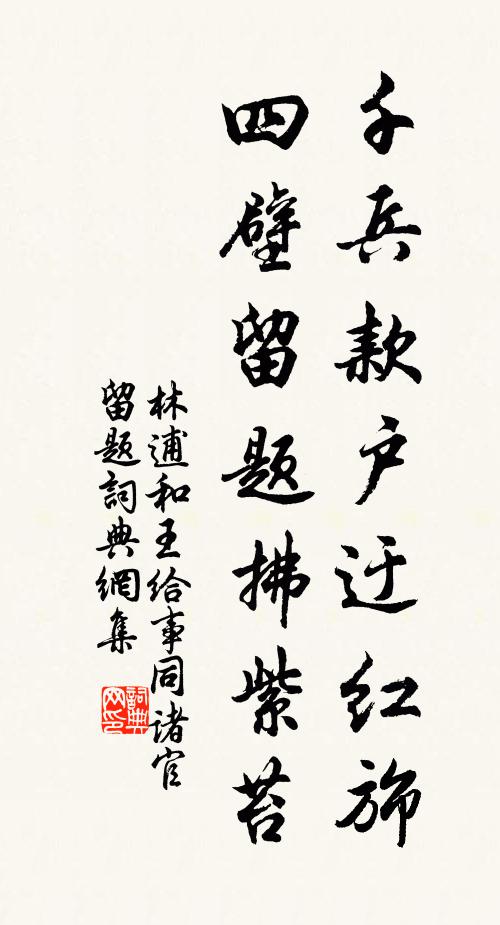 千兵款户迂红斾
四壁留题拂紫苔
林逋和王给事同诸官
留题詞典網集
詞典网印